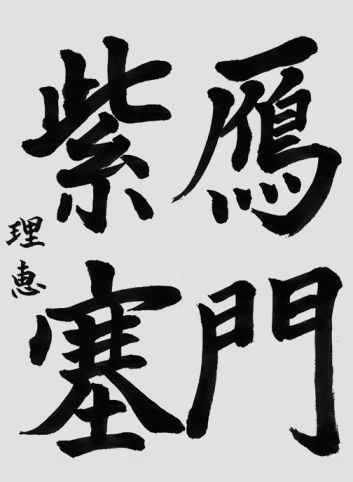 鴈門
紫塞
理恵